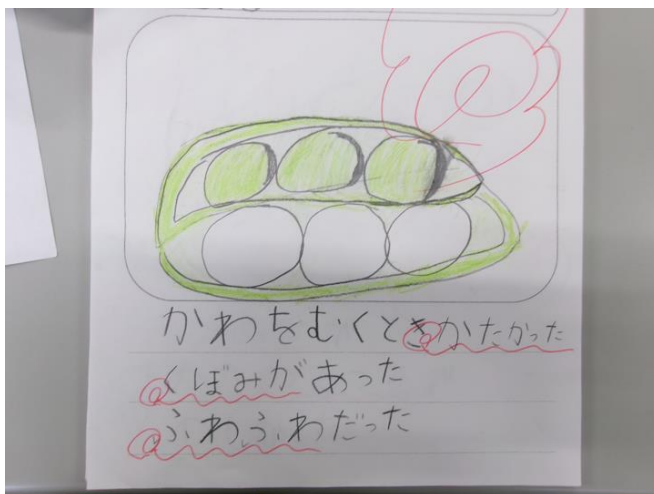 かわをむくときかたかった
くぼみがあった
ふわふわだった